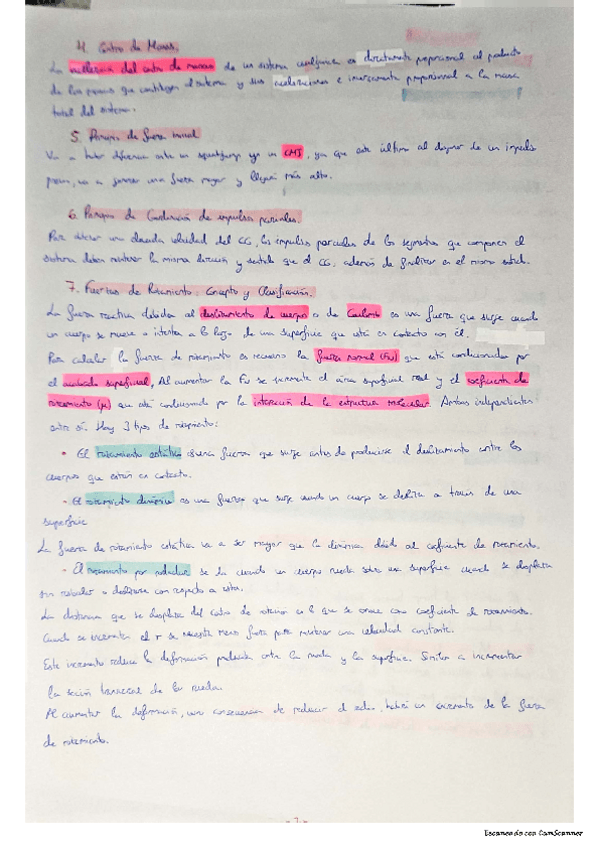 4. Centro de Masas.
La aceleración del centro de masas de un sistema cualquiera es directamente proporcional al producto
de las masas que constituyen el sistema y sus aceleraciones e inversamente proporcional a la masa
total del sistema.
5. Principio de fuerza inicial
Va a haber diferencia entre un squat jump y un CMJ, ya que este último al disponer de un impulso
previo, va a generar una fuerza mayor y llegará más alto.
6. Principio de Coordinación de impulsos parciales.
Para obtener una elevada velocidad del CG, los impulsos parciales de los segmentos que componen el
sistema deben mantener la misma dirección y sentido que el CG, además de finalizar en el mismo
7. Fuerzas de Rozamiento: Concepto y Clasificación.
La fuerza reactiva debida al deslizamiento de cuerpo o de Coulomb es una fuerza que surge cuando
un cuerpo se mueve o intenta a lo largo de una superficie que está en contacto con él.
Para calcular la fuerza de rozamiento es necesario la fuerza normal (FN) que está condicionada por
el acabado superficial, Al aumentar la FN se incrementa el área superficial real y el coeficiente de
rozamiento (μ) que está condicionado por la interacción de la estructura molecular. Ambas independientes
entre sí. Hay 3 tipos de rozamiento:
• El rozamiento estático fuerza que surge antes de producirse el deslizamiento entre los
cuerpos que están en contacto.
- El rozamiento dinámico es una fuerza que surge cuando un cuerpo se desliza a través de una
superficie
La fuerza de rozamiento estática va a ser mayor que la dinámica debido al coeficiente de rozamiento.
- El rozamiento por rodadura se da cuando un cuerpo rueda sobre una superficie cuando se desplaza
sin resbalar o deslizarse con respecto a esta.
La distancia que se desplaza del centro de rotación es lo que se conoce como coeficiente de rozamiento.
Cuando se incrementa el r se necesita menos fuerza para mantener una velocidad constante.
Este incremento reduce la deformación producida entre la rueda y la superficie. Similar a incrementar
la sección transversal de la rueda.
Al aumentar la deformación, como consecuencia de reducir el radio, habrá un incremento de la fuerza
de rozamiento.
- 7 -
Escaneado con CamScanner